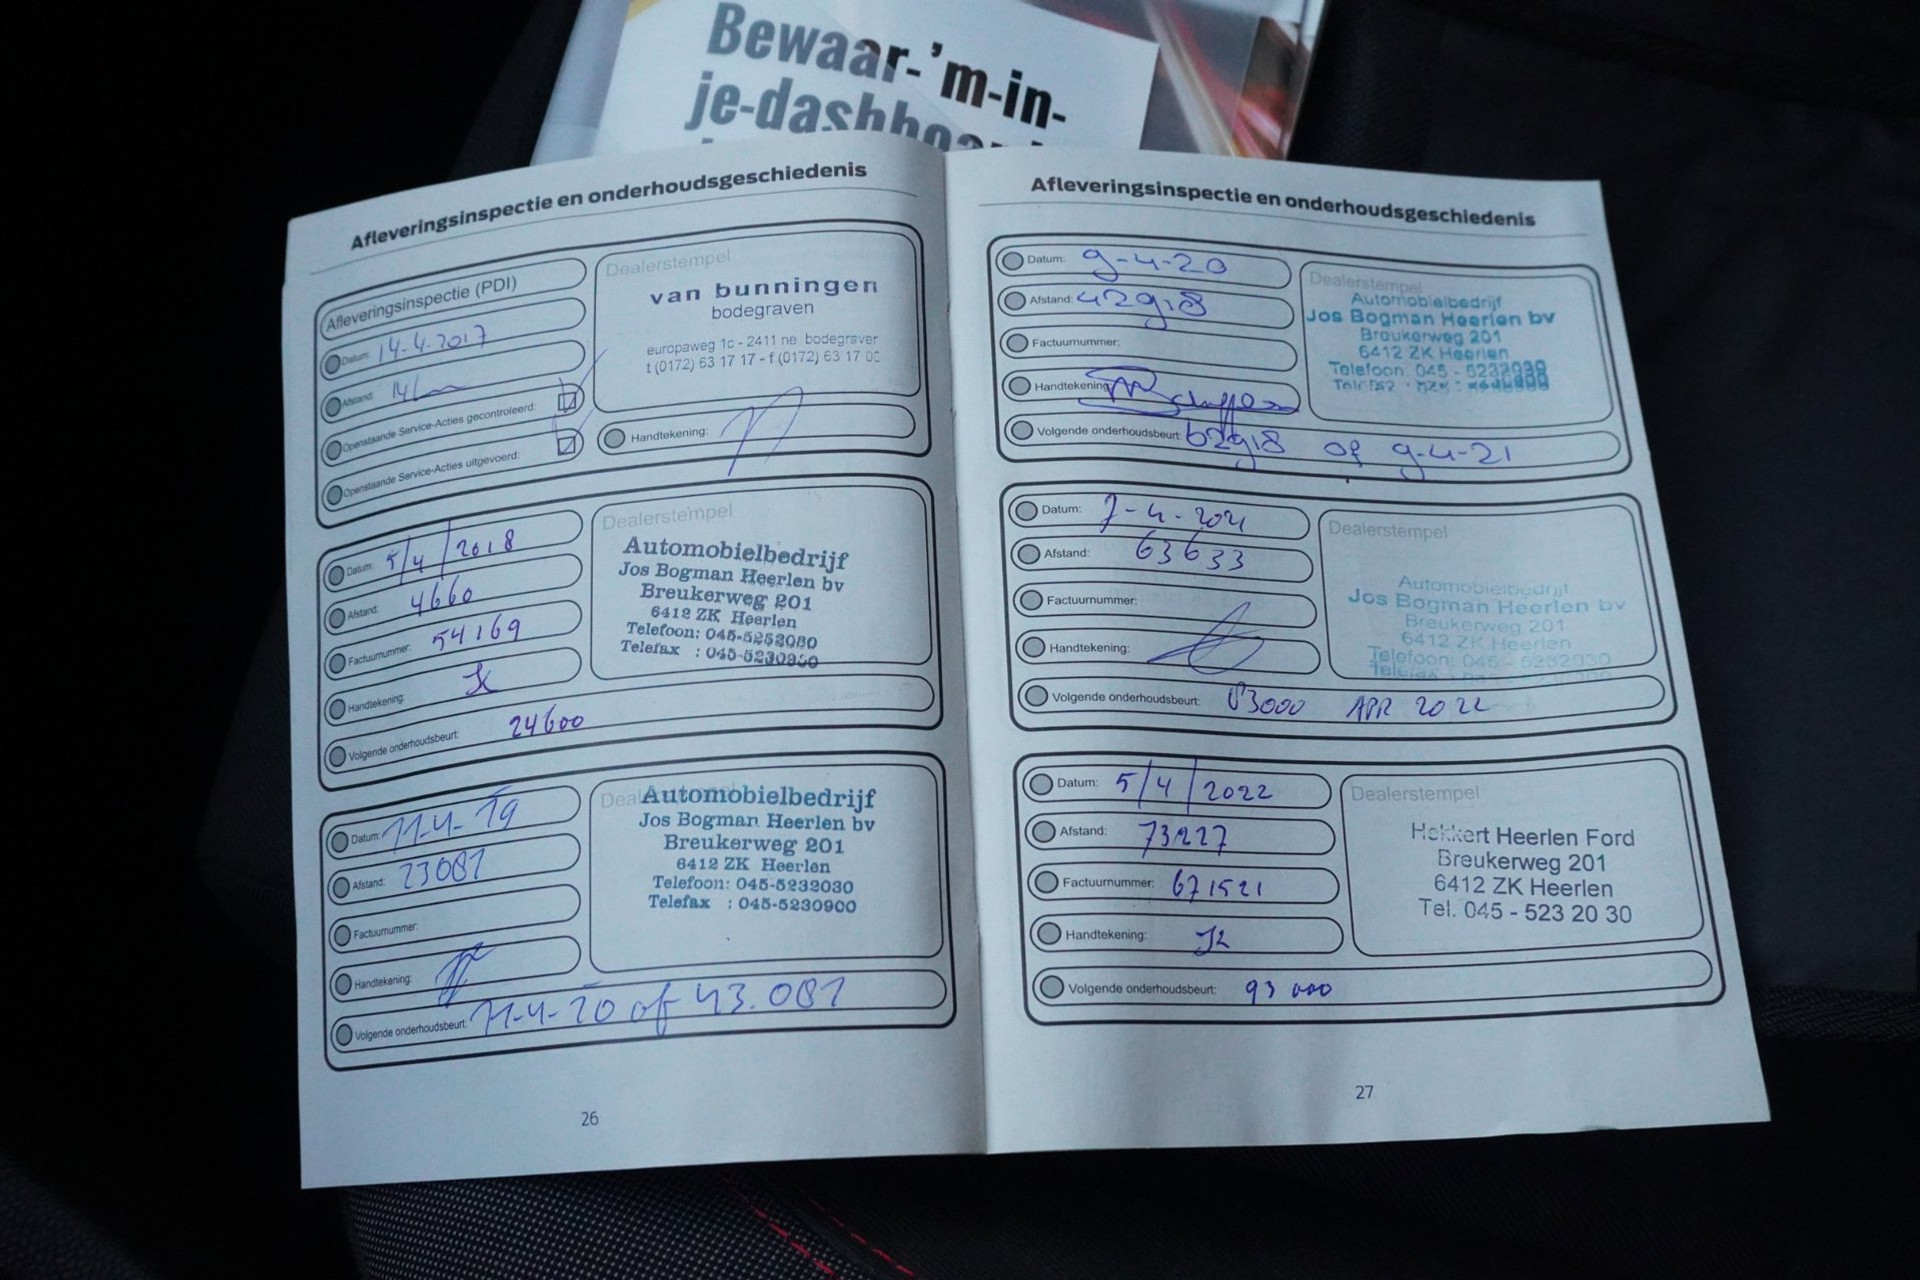 Bewaar-'m-in-
je-dashboar
Afleveringsinspectie en onderhoudsgeschiedenis
Afleveringsinspectie (PDI)
Datum: 14-4-2017
Afstand: 14
Openstaande Service-Acties gecontroleerd:
Openstaande Service-Acties uitgevoerd:
Dealerstempel
van bunningen
bodegraven
europaweg 1c - 2411 ne bodegraven
t (0172) 63 17 17 - f (0172) 63 17
Handtekening:
Datum: 5/4/2018
Afstand: 4660
Factuurnummer: 54169
Handtekening:
Volgende onderhoudsbeurt: 24600
Dealerstempel
Automobielbedrijf
Jos Bogman Heerlen bv
Breukerweg 201
6412 ZK Heerlen
Telefoon:
Telefax :
Datum: 11-4-19
Afstand: 23081
Factuurnummer:
Handtekening:
Volgende onderhoudsbeurt: 11-4-20 of 43.081
Automobielbedrijf
Jos Bogman Heerlen bv
Breukerweg 201
6412 ZK Heerlen
Telefoon: 045-5232030
Telefax : 045-5230900
26
Afleveringsinspectie en onderhoudsgeschiedenis
Datum: 9-4-20
Afstand: 42918
Factuurnummer:
Handtekening:
Volgende onderhoudsbeurt: 62918 of 9-4-21
Dealerstempel
Automobielbedrijf
Jos Bogman Heerlen bv
Breukerweg 201
6412 ZK Heerlen
Telefoon: 045 -
Datum: 7-4-2021
Afstand: 63633
Factuurnummer:
Handtekening:
Volgende onderhoudsbeurt: 83000 APR 2022
Dealerstempel
Automobielbedrijf
Jos Bogman Heerlen bv
Breukerweg 201
6412 ZK Heerlen
Telefoon: 045 - 5232030
Telefax : 045 -
Datum: 5/4/2022
Afstand: 73227
Factuurnummer: 671521
Handtekening:
Volgende onderhoudsbeurt: 93000
Dealerstempel
Hekkert Heerlen Ford
Breukerweg 201
6412 ZK Heerlen
Tel. 045 - 523 20 30
27